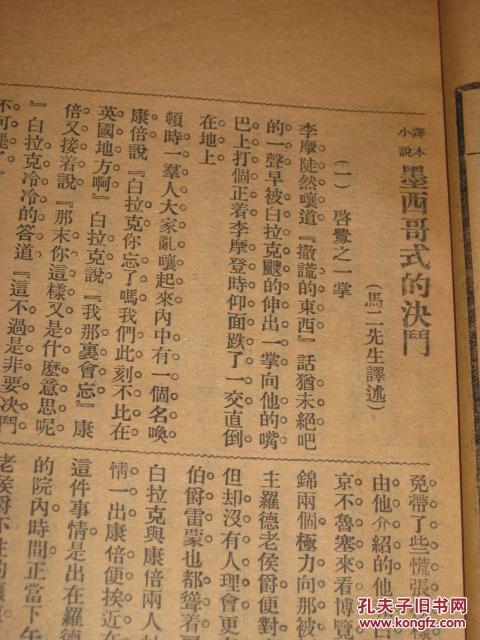 譯本
小說
墨西哥式的決鬥
(馬二先生譯述)
(一) 啓釁之一掌
李摩陡然嚷道『撒謊的東西』話猶未絕吧
的一聲早被白拉克颼的伸出一掌向他的嘴
巴上打個正着李摩登時仰面跌了一交直倒
在地上
頓時一羣人大家亂嚷起來內中有一個名喚
康倍說『白拉克你忘了嗎我們此刻不比在
英國地方啊』白拉克說『我那裏會忘』康
倍又接着說『那末你這樣又是什麼意思呢
』白拉克冷冷的答道『這不過是非要決鬥
不可罷了
免帶了些慌張
由他介紹的他
京不魯塞來看博覽
錦兩個極力向那被
主羅德老侯爵便對
但却沒有人理會更
伯爵雷蒙也都聳着
白拉克與康倍兩人
情一出康倍便挨近在
這件事情是出在羅德
的院內時間正當下午
老侯爵
孔夫子